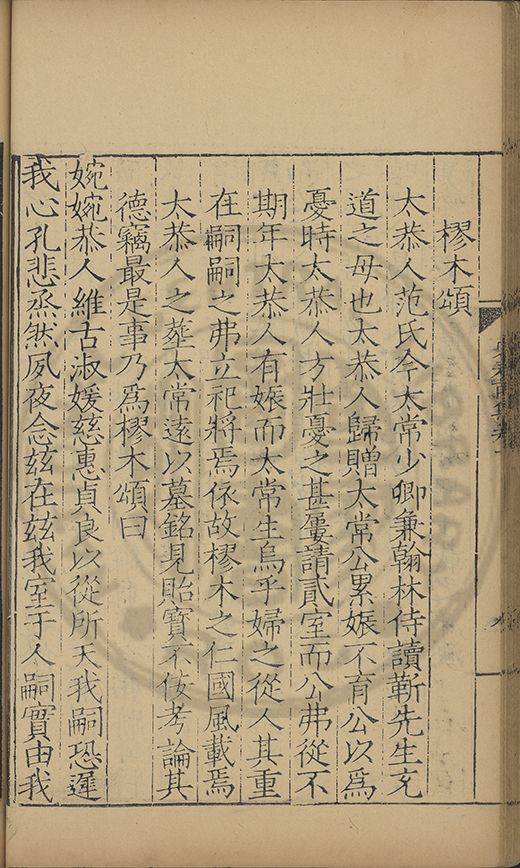 樛木頌
太恭人范氏今太常少卿兼翰林侍讀靳先生充
道之母也太恭人歸贈太常公累娠不育公以爲
憂時太恭人方壯憂之甚屢請貳室而公弗從不
期年太恭人有娠而太常生烏乎婦之從人其重
在嗣嗣之弗立祀將焉依故樛木之仁國風載焉
太恭人之葬太常遠以墓銘見貽寳不佞考論其
德竊最是事乃爲樛木頌曰
婉婉恭人維古淑媛慈惠貞良以從所天我嗣恐遲
我心孔悲烝然夙夜念兹在兹我室于人嗣實由我